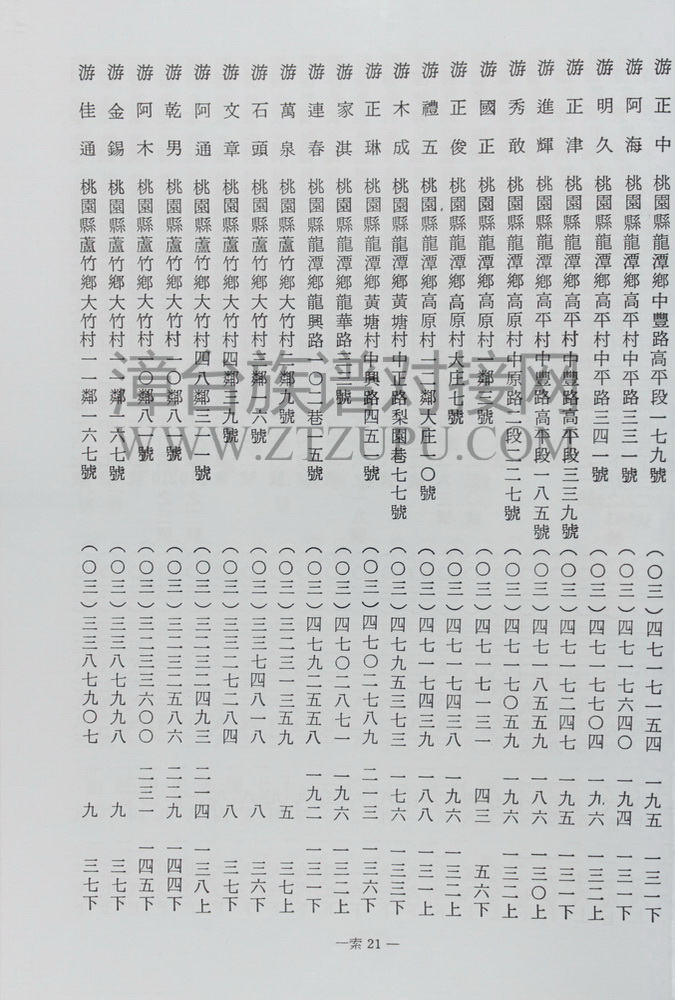 游正中 桃園縣龍潭鄉中豐路高平段一七九號 (〇三)四七一七一五四 一九五 一三一下
游阿海 桃園縣龍潭鄉高平村中平路三三一號 (〇三)四七一七六四〇 一九四 一三一下
游明久 桃園縣龍潭鄉高平村中平路三四一號 (〇三)四七一七七〇四 一九六 一三二上
游正津 桃園縣龍潭鄉高平村中豐路高平段三三九號 (〇三)四七一七二四七 一九五 一三一下
游進輝 桃園縣龍潭鄉高平村中豐路高平段一八五號 (〇三)四七一八五五九 一八六 一三〇上
游秀敢 桃園縣龍潭鄉高原村中原路二段一二七號 (〇三)四七一七〇五九 一九六 一三二上
游國正 桃園縣龍潭鄉高原村一鄰一號 (〇三)四七一七一三一 四三 五六下
游正俊 桃園縣龍潭鄉高原村大庄七號 (〇三)四七一七四三八 一九六 一三二上
游禮五 桃園縣龍潭鄉高原村一二鄰大庄一〇號 (〇三)四七一七四三九 一八八 一三一上
游木成 桃園縣龍潭鄉黃塘村中正路梨園巷七七號 (〇三)四七九五三七三 一七六 一三三下
游正琳 桃園縣龍潭鄉黃塘村中興路四五一號 (〇三)四七〇二七八九 二一三 一三六下
游家淇 桃園縣龍潭鄉龍華路一號 (〇三)四七〇二八七一 一九六 一三二上
游連春 桃園縣龍潭鄉龍興路一〇二巷一五號 (〇三)四七九二五五八 一九二 一三一下
游萬泉 桃園縣蘆竹鄉大竹村二鄰九號 (〇三)三二三一三五九 五 三七上
游石頭 桃園縣蘆竹鄉大竹村三鄰一六號 (〇三)三三七四八一八 八 三六下
游文章 桃園縣蘆竹鄉大竹村四鄰三九號 (〇三)三三二七二八四 八 三七下
游阿通 桃園縣蘆竹鄉大竹村四八鄰三一一號 (〇三)三二三二四九三 二一四 一三八上
游乾男 桃園縣蘆竹鄉大竹村一〇鄰八號 (〇三)三二三二五八六 二二九 一四四下
游阿木 桃園縣蘆竹鄉大竹村一〇鄰八一號 (〇三)三二三三六〇〇 二三一 一四五下
游金錫 桃園縣蘆竹鄉大竹村一一鄰一六七號 (〇三)三三八七九九八 九 三七下
游佳通 桃園縣蘆竹鄉大竹村一一鄰一六七號 (〇三)三三八七九〇七 九 三七下
漳台族谱对接网
WWW.ZTZUPU.COM
—索 21—